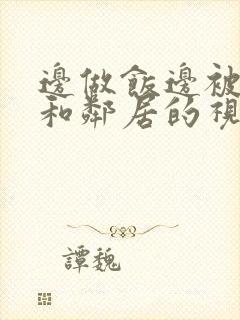 邊做飯邊被
和鄰居的視
譚魏